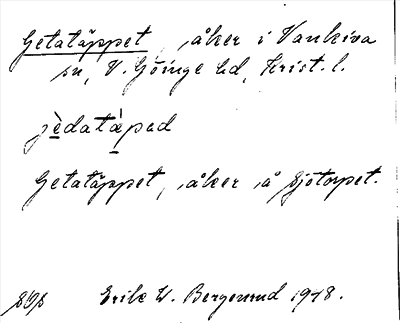 Getatäppet, åker i Vankiva
sn, V. Göinge hd, Krist. l.
jèdatàpad
Getatäppet, åker å Sjötorpet.
Erik W. Bergenrud 1918.